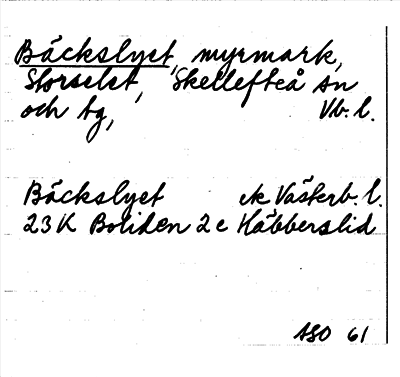 Bäckslyet, myrmark,
Storselet, Skellefteå sn
och tg, Vb. l.
Bäckslyet ek Västerb. l.
23K Boliden 2c Häbberslid
ASO 61